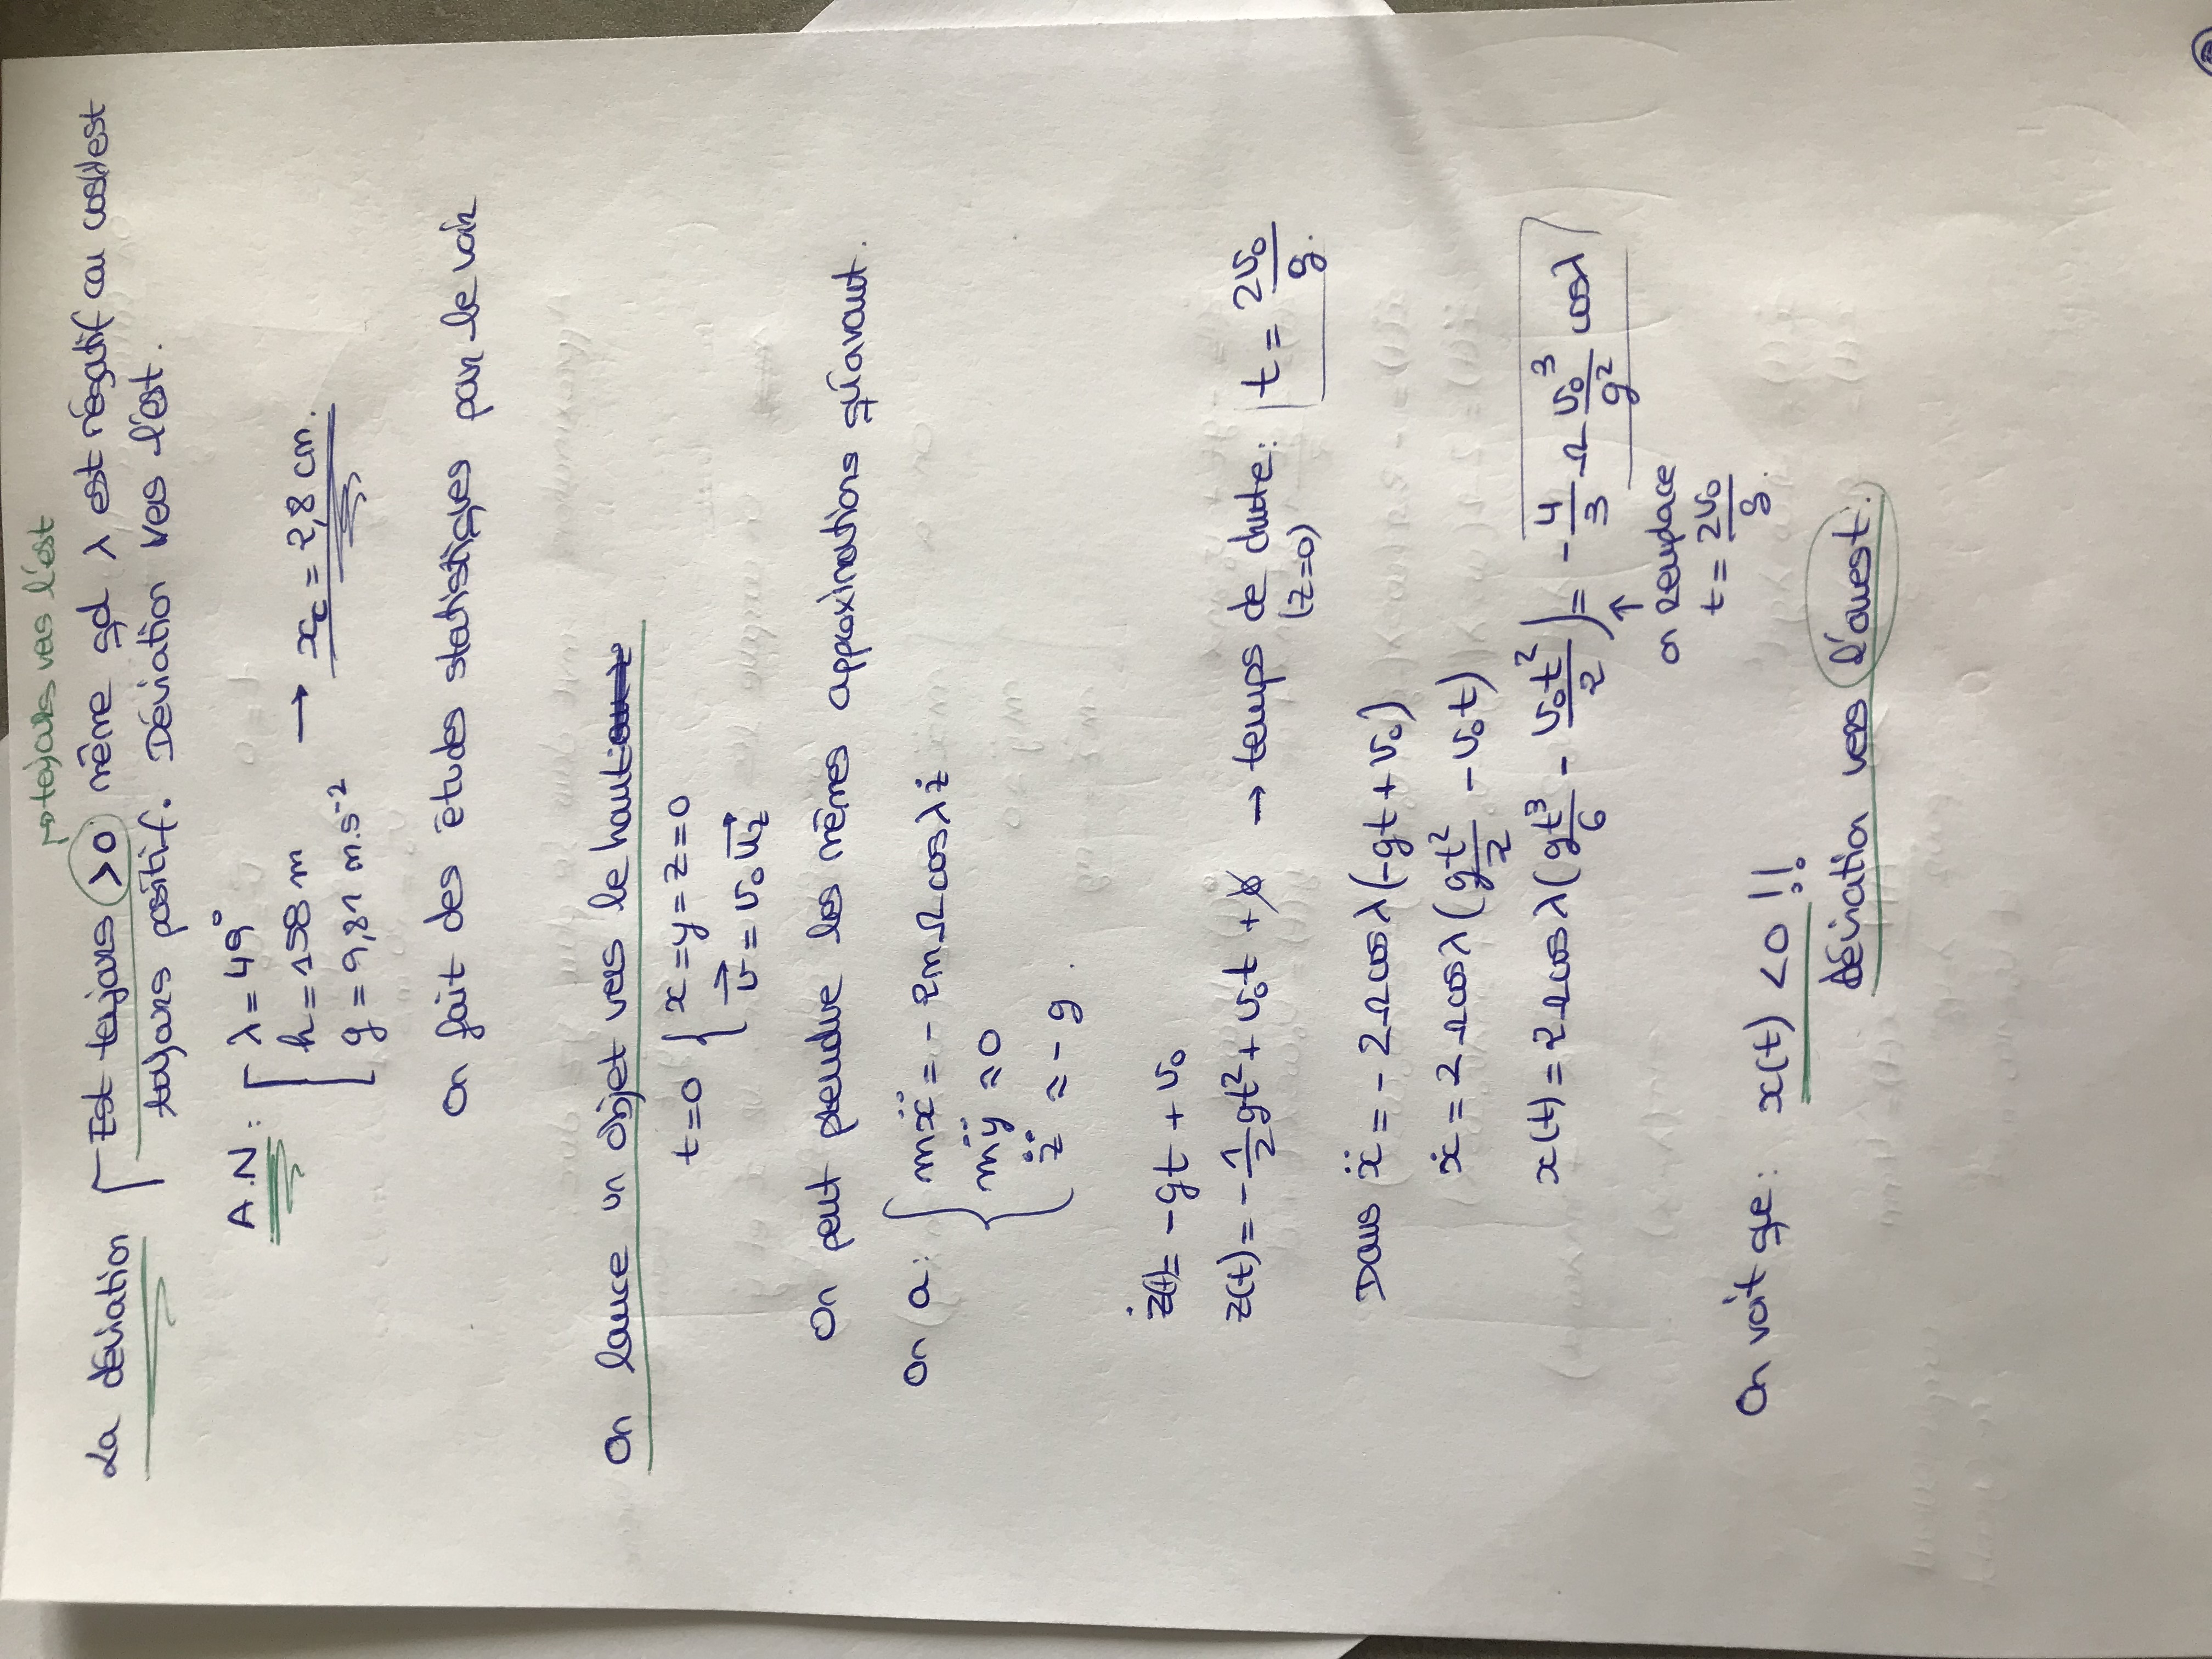 → toujours vers l'est
La déviation [ Est toujours >0 même qd λ est négatif car cos(λ) est
toujours positif. Déviation vers l'est.
A.N : [ λ = 49°
h = 158 m → x_c = 2,8 cm.
g = 9,81 m.s⁻²
On fait des études statistiques par le voir
On lance un objet vers le haut
t=0 { x=y=z=0
v⃗ = v₀ u⃗z
On peut prendre les mêmes approximations qu'avant.
On a : { mẍ = - 2mΩcosλ ż
mÿ ≈ 0
z̈ ≈ - g.
ż(t) = -gt + v₀
z(t) = -1/2 gt² + v₀t + 0 → temps de chute : t = 2v₀/g.
(z=0)
Dans ẍ = - 2Ωcosλ(-gt + v₀)
ẋ = 2Ωcosλ(gt²/2 - v₀t)
x(t) = 2Ωcosλ(gt³/6 - v₀t²/2) = -4/3 Ω v₀³/g² cosλ
↑
on remplace
t = 2v₀/g.
On voit que : x(t) <0 !!
déviation vers l'ouest.